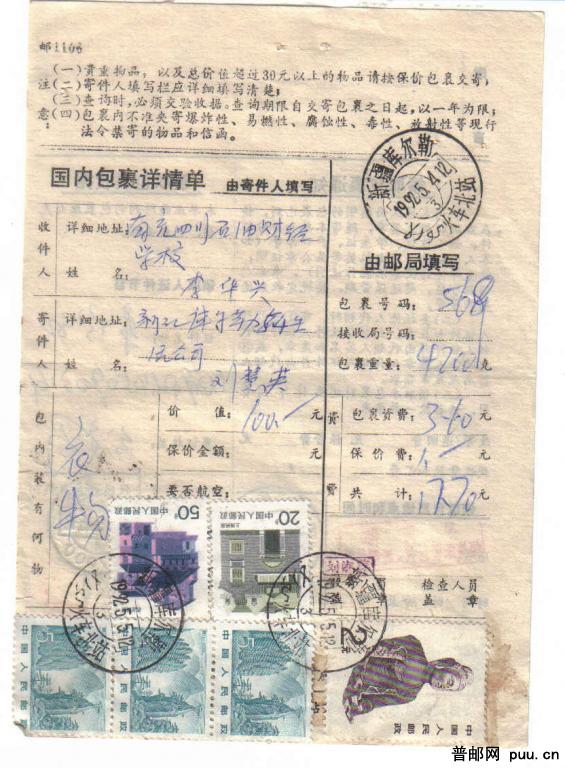 邮1106
(一)贵重物品，以及总价值超过30元以上的物品请按保价包裹交寄;
注(二)寄件人填写栏应详细填写清楚;
(三)查询时，必须交验收据。查询期限自交寄包裹之日起，以一年为限;
意:(四)包裹内不准夹寄爆炸性、易燃性、腐蚀性、毒性、放射性等现行
法令禁寄的物品和信函。
新疆库尔勒
1992.5.4.12
3
火车北站
国内包裹详情单 由寄件人填写
由邮局填写
收件人
详细地址: 南充四川石油财经
学校
姓名: 李华兴
寄件人
详细地址:
公司
姓名: 刘慧英
包裹号码: 568
接收局号码:
包裹重量: 4200克
包内装有何物
衣
价值: 100.— 元
保价金额: 元
要否航空:
资费
包裹资费: 元
保价费: 1.— 元
共计: 元
检查人员
盖章
50分
中国人民邮政
20分
中国人民邮政
上海民居
新疆库尔勒
1992.5.5.12
3
火车北站
新疆库尔勒
5.5.12
中国人民邮政
中国人民邮政
中国人民邮政
2元
中国人民邮政
普邮网 puu.cn